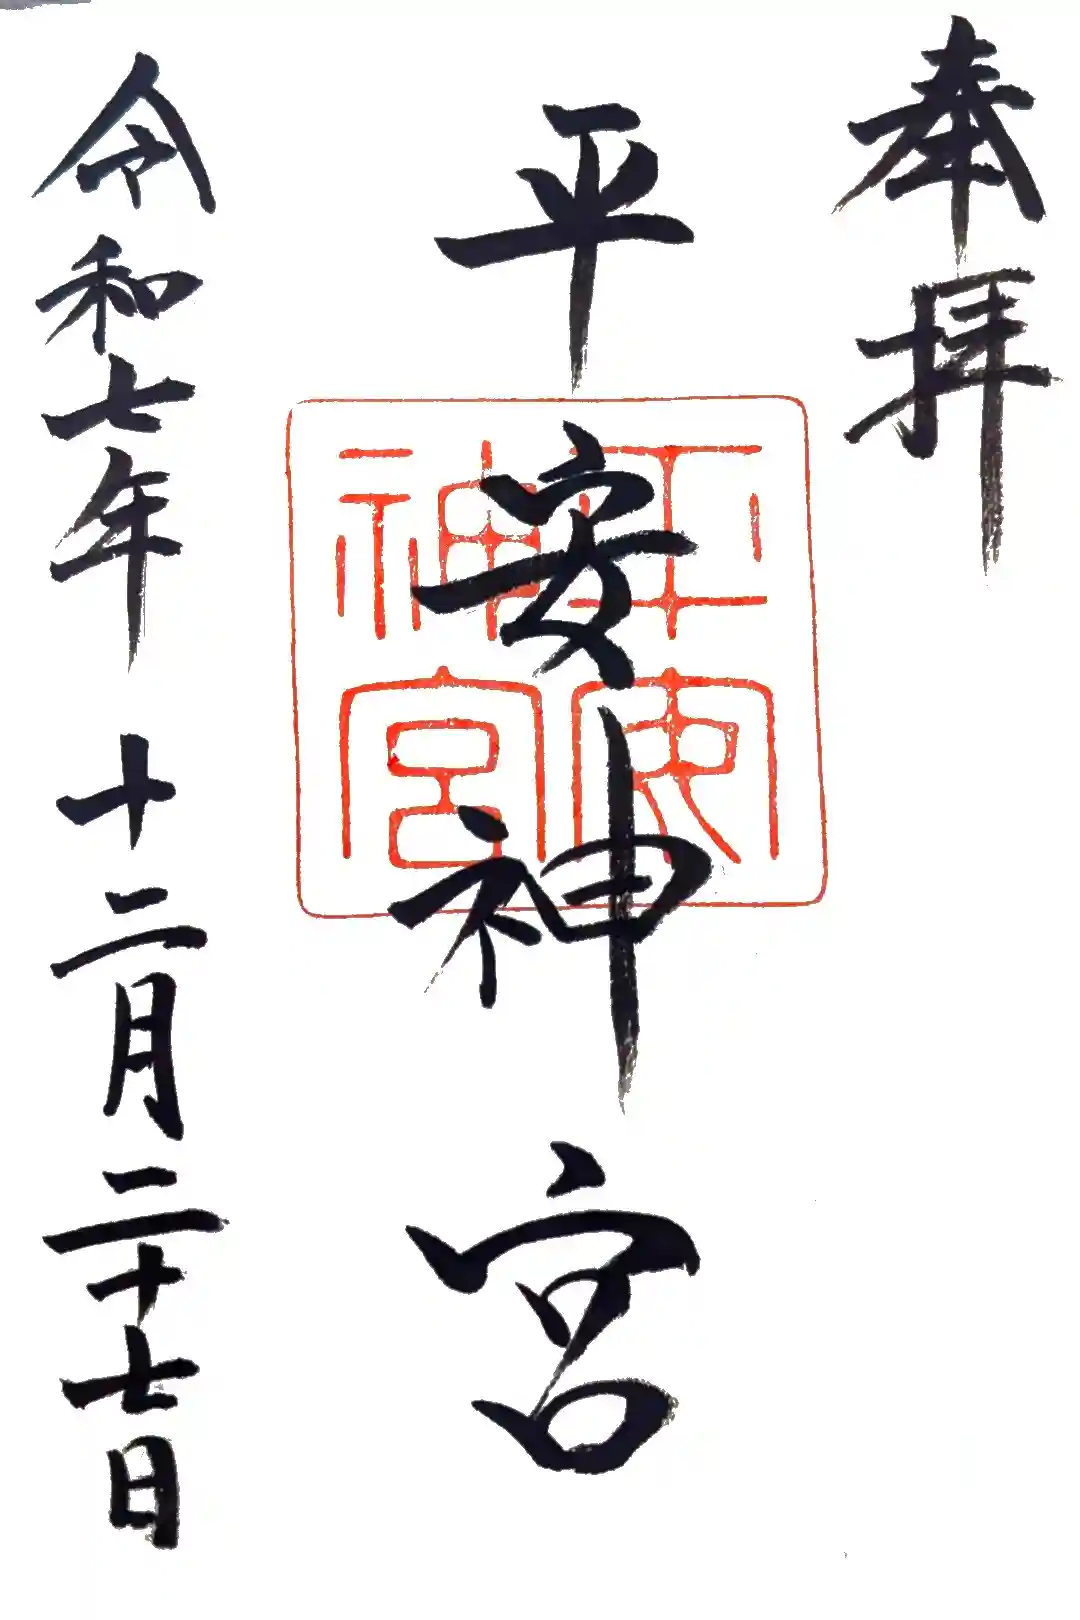 奉拝
平安神宮
平安神宮
令和七年十二月二十七日